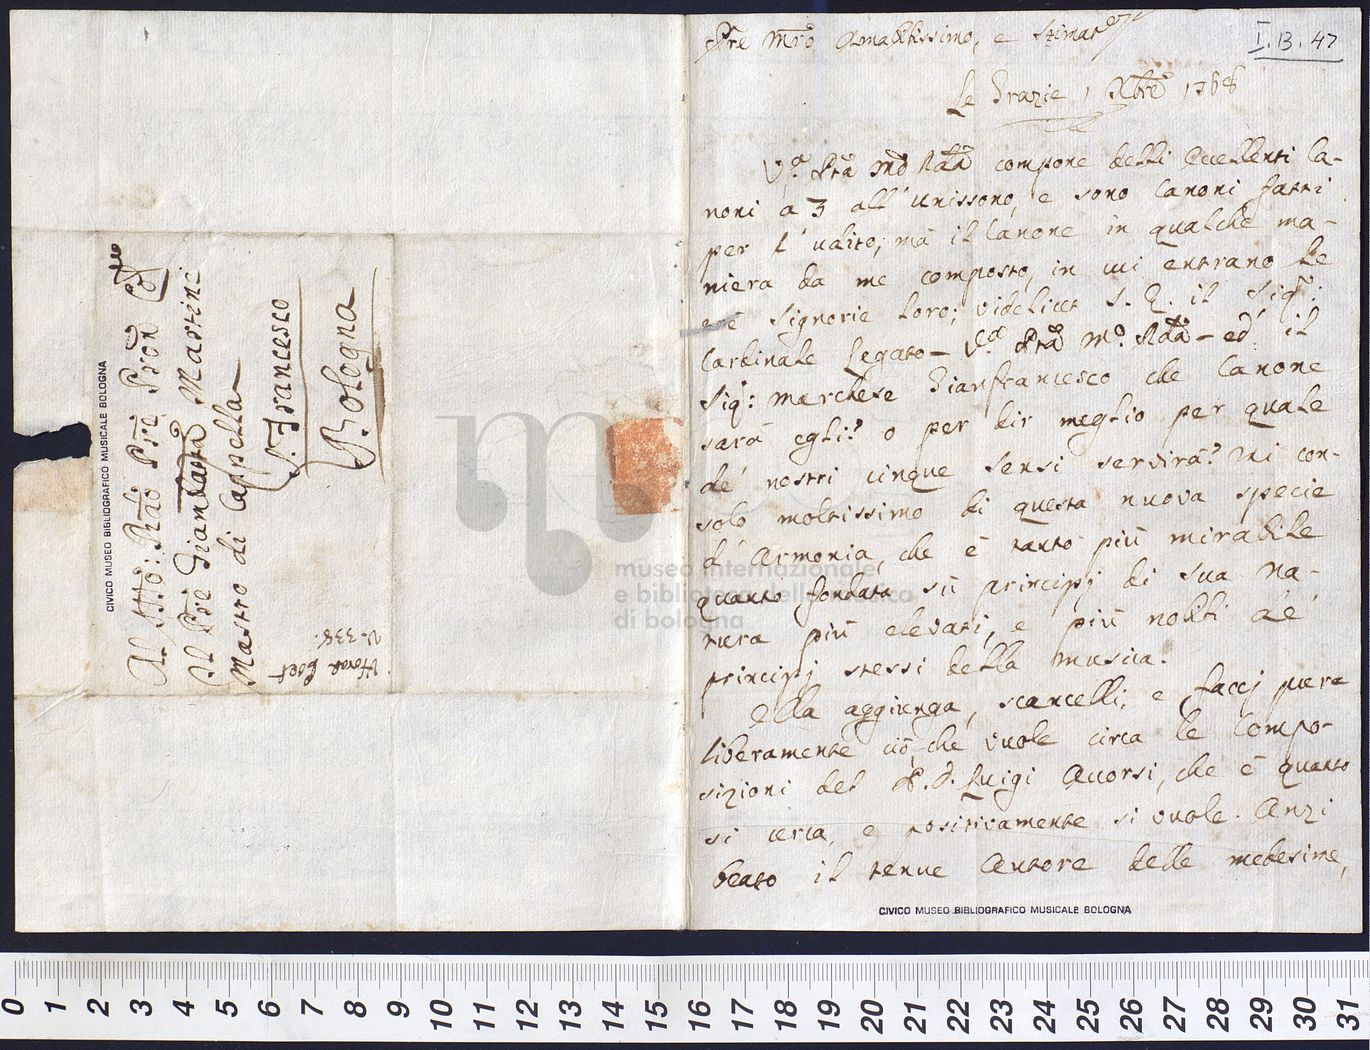 Al Mto: Rndo Pre Pron Colmo
Il Pre Giambatta Martini
Mastro di Cappella
S. Francesco
Bologna
CIVICO MUSEO BIBLIOGRAFICO MUSICALE BOLOGNA
I. 13. 47
Pre Mro Amabilissimo, e Stimatmo
Le Grazie 1 Xbre 1768
Va Ptà Mo Rda compone delli Eccellenti Ca-
noni a 3 all'unissono, e sono Canoni fatti
per l'udito; mà il Canone in qualche ma-
niera da me composto, in cui entrano le
Signorie loro; videlicet S. E. il Sigr:
Cardinale Legato - Va Ptà Mo Rda - ed il
Sigr: Marchese Gianfrancesco che Canone
sarà egli? o per dir meglio per quale
de' nostri cinque sensi servirà? mi con-
solo moltissimo di questa nuova specie
d'Armonia, che è tanto più mirabile
quanto fondata sù principj di sua na-
tura più elevati, e più nobili de'
principj stessi della musica.
Ella aggiunga, scancelli, e facci pure
liberamente ciò che vuole circa le Compo-
sizioni del P. D. Luigi Accorsi, che è quanto
si cerca, e positivamente si vuole. Anzi
beato il tenue Autore delle medesime,
CIVICO MUSEO BIBLIOGRAFICO MUSICALE BOLOGNA
museo internazionale
e biblioteca della musica
di bologna
0 1 2 3 4 5 6 7 8 9 10 11 12 13 14 15 16 17 18 19 20 21 22 23 24 25 26 27 28 29 30 31